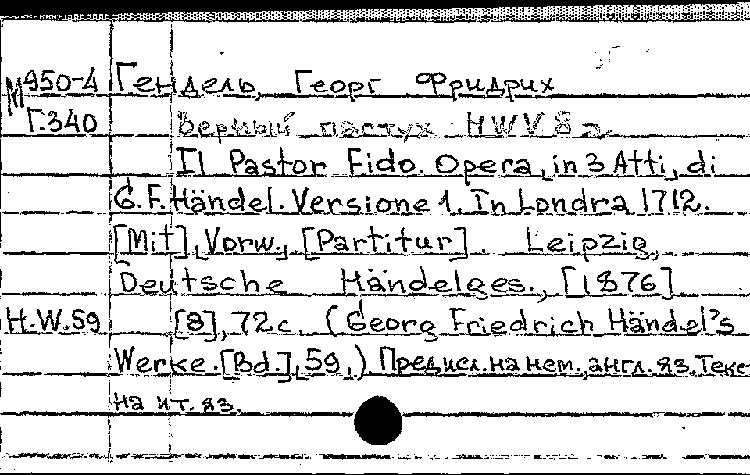 М950-4 Гендель, Георг Фридрих
Г.340 Верный пастух HWV 8 a.
Il Pastor Fido. Opera, in 3 Atti, di
G.F. Händel. Versione 1. In Londra 1712.
[Mit], Vorw., [Partitur]. Leipzig,
Deutsche Händelges., [1876]
H.W.59 [8], 72 c. (Georg Friedrich Händel's
Werke. [Bd.], 59,) Предисл. на нем., англ. яз. Текс
на ит. яз.